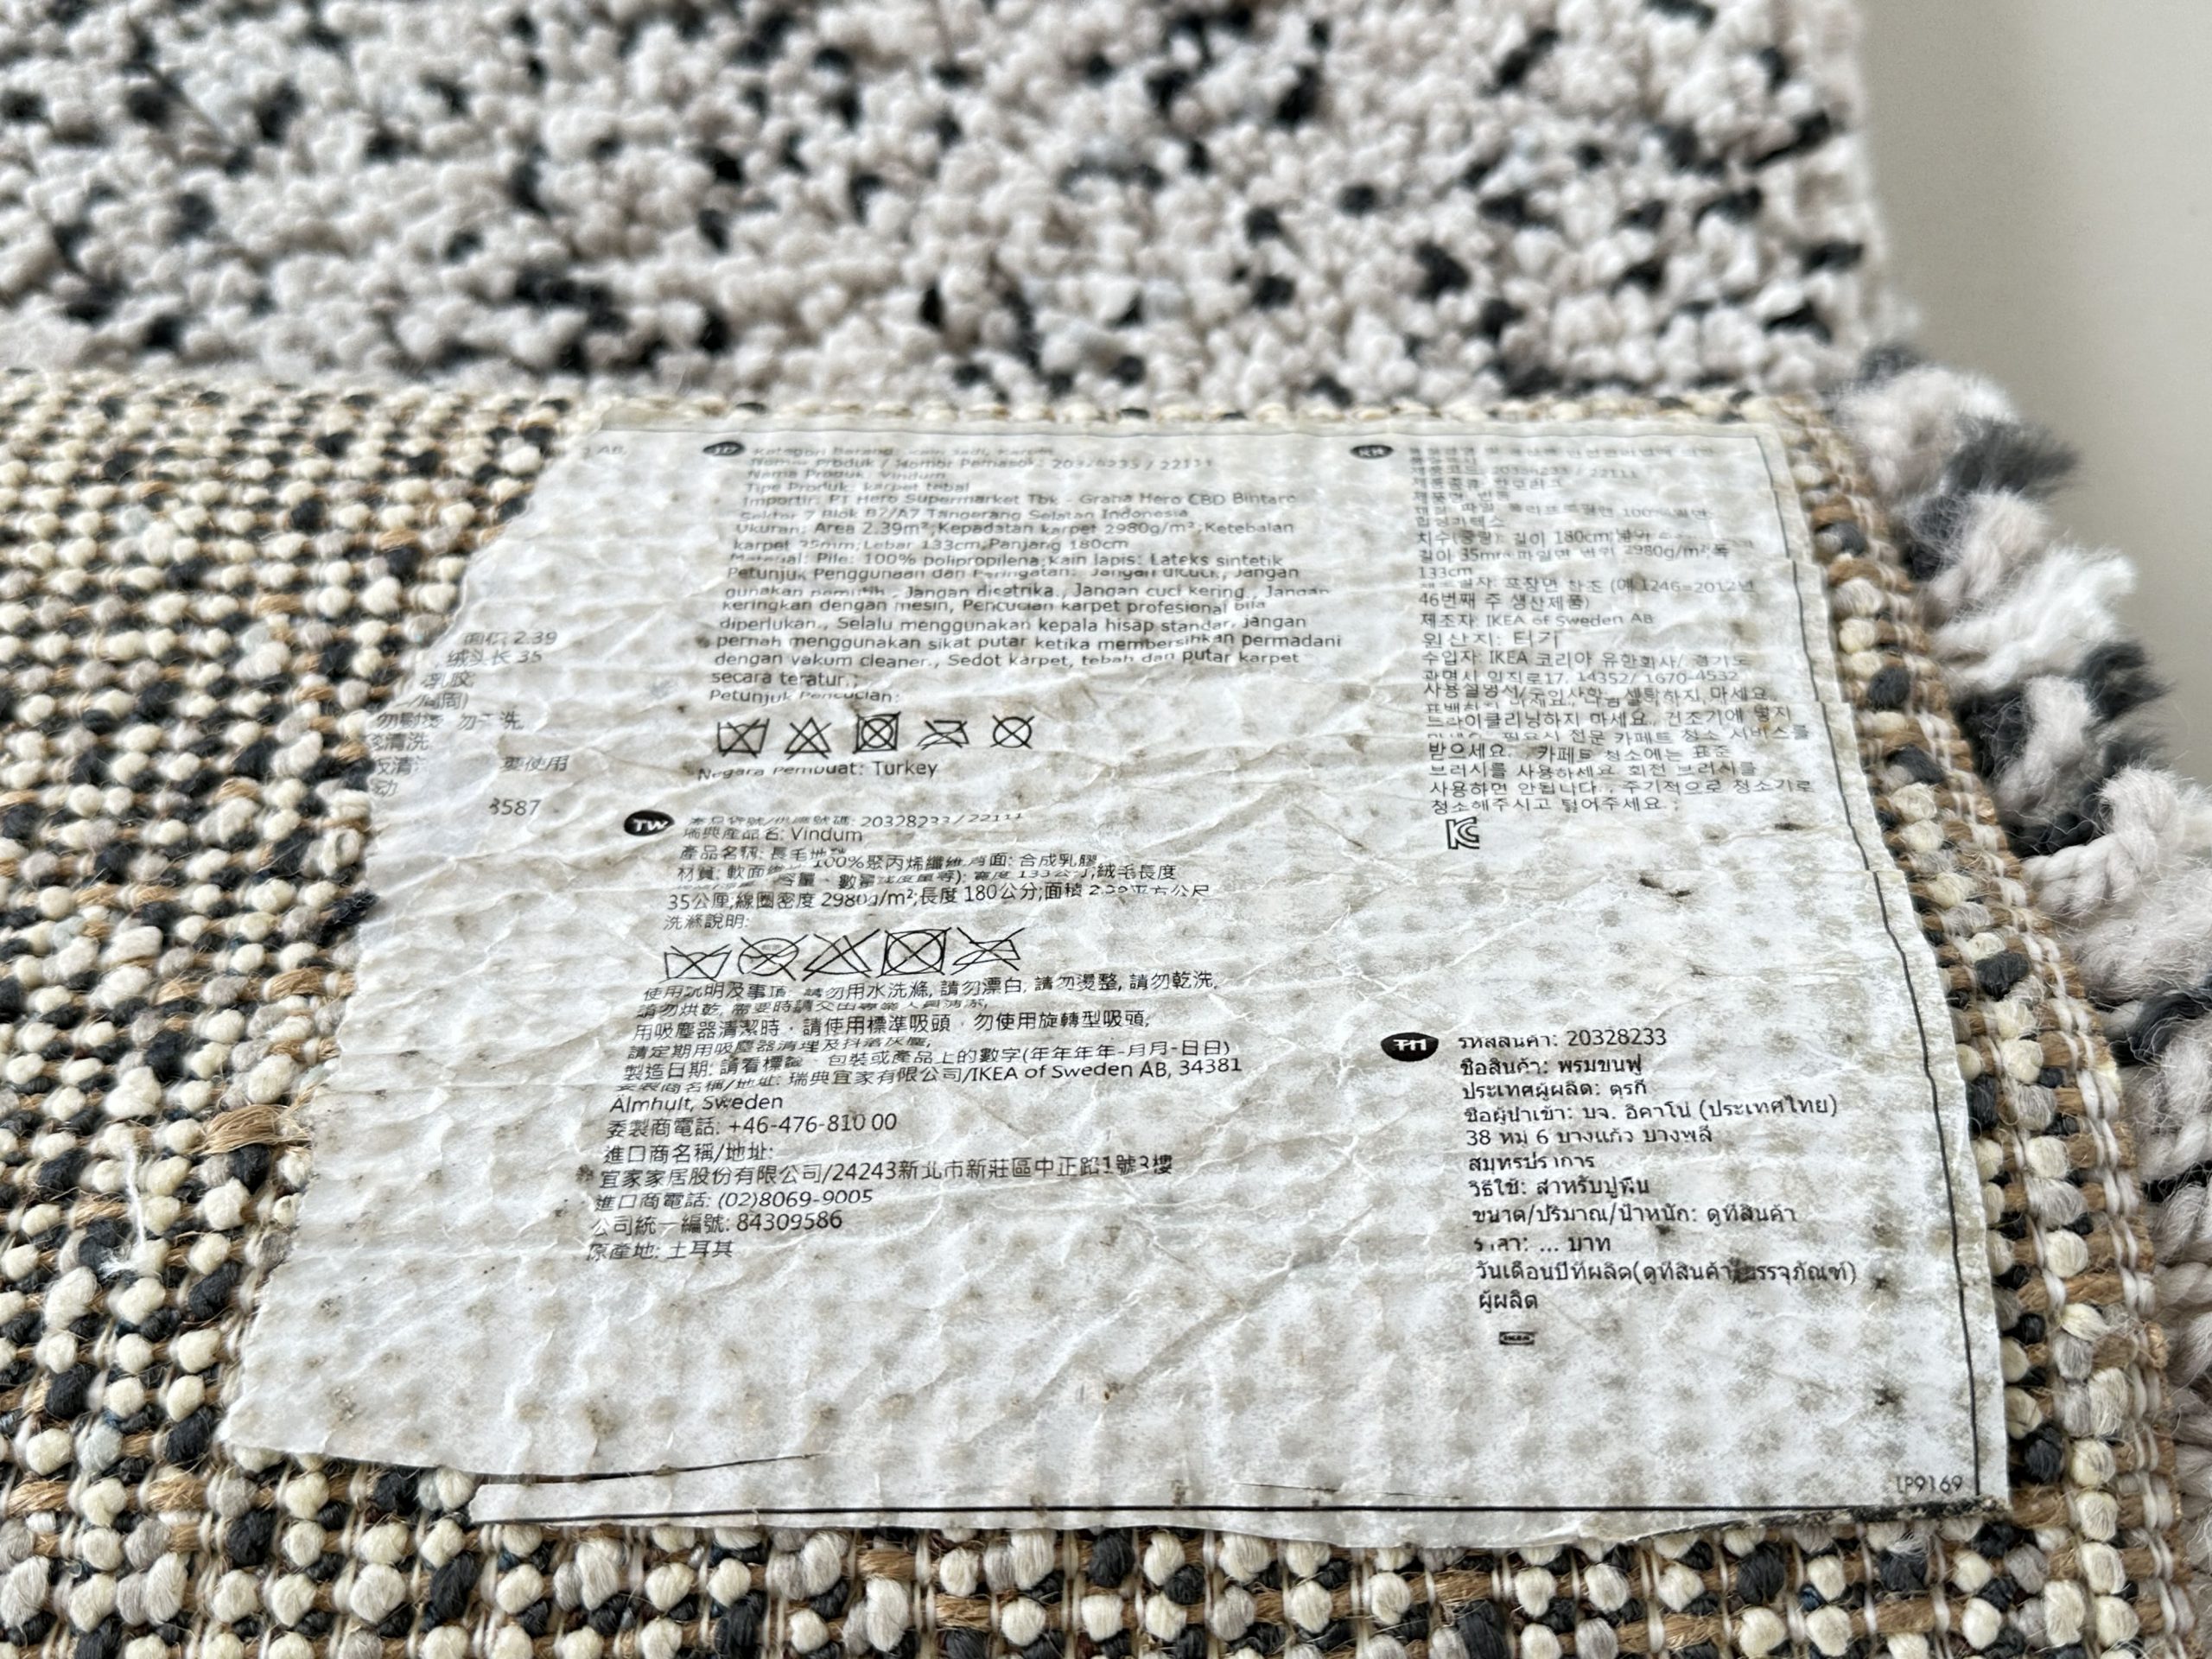 2 AB,
面积 2.39
绒头长 35
乳胶
周)
勿干洗
清洗
要使用
动
3587
ID Kategori Barang:
Nama Produk / Nomor Pemasok: 20328233 / 22111
Nama Produk: Vindum
Tipe Produk: karpet tebal
Importir: PT Hero Supermarket Tbk - Graha Hero CBD Bintaro
Sektor 7 Blok B7/A7 Tangerang Selatan Indonesia
Ukuran: Area 2.39m²;Kepadatan karpet 2980g/m²;Ketebalan
karpet 35mm;Lebar 133cm;Panjang 180cm
Material: Pile: 100% polipropilena;kain lapis: Lateks sintetik
Petunjuk Penggunaan dan Peringatan: Jangan dicuci., Jangan
gunakan pemutih., Jangan disetrika., Jangan cuci kering., Jangan
keringkan dengan mesin, Pencucian karpet profesional bila
diperlukan., Selalu menggunakan kepala hisap standar, jangan
pernah menggunakan sikat putar ketika membersihkan permadani
dengan vakum cleaner., Sedot karpet, tebah dan putar karpet
secara teratur.;
Petunjuk Pencucian:
Negara Pembuat: Turkey
KR
제품코드: 20328233 / 22111
100%
치수(중량): 길이 180cm;넓이
길이 35mm 2980g/m²;폭
133cm
포장면 참조 (예.1246=2012년
46번째 주 생산제품)
제조자: IKEA of Sweden AB
원산지: 터키
수입자: IKEA 코리아 유한회사/ 경기도
광명시 일직로17, 14352/ 1670-4532
사용설명서/주의사항: 세탁하지 마세요,
드라이클리닝하지 마세요., 건조기에 넣지
마세요, 필요시 전문 카페트 청소 서비스를
받으세요. , 카페트 청소에는 표준
브러시를 사용하세요 회전 브러시를
사용하면 안됩니다., 주기적으로 청소기로
청소해주시고 털어주세요.;
TW 產品貨號/供應號碼: 20328233 / 22111
瑞典產品名: Vindum
產品名稱: 長毛地毯
材質: 100%聚丙烯纖維 背面: 合成乳膠
容量、數量或度量等): 寬度 133公分;絨毛長度
35公厘;線圈密度 2980g/m²;長度 180公分;面積 2.39平方公尺
洗滌說明:
使用說明及事項: 請勿用水洗滌, 請勿漂白, 請勿燙整, 請勿乾洗,
請勿烘乾, 需要時請交由專業人員清潔,
用吸塵器清潔時,請使用標準吸頭,勿使用旋轉型吸頭,
請定期用吸塵器清理及抖落灰塵;
製造日期: 請看標籤、包裝或產品上的數字(年年年年-月月-日日)
委製商名稱/地址: 瑞典宜家有限公司/IKEA of Sweden AB, 34381
Älmhult, Sweden
委製商電話: +46-476-810 00
進口商名稱/地址:
宜家家居股份有限公司/24243新北市新莊區中正路1號3樓
進口商電話: (02)8069-9005
公司統一編號: 84309586
原產地: 土耳其
TH รหัสสินค้า: 20328233
ชื่อสินค้า: พรมขนฟู
ประเทศผู้ผลิต: ตุรกี
ชื่อผู้นำเข้า: บจ. อิคาโน่ (ประเทศไทย)
38 หมู่ 6 บางแก้ว บางพลี
สมุทรปราการ
วิธีใช้: สำหรับปูพื้น
ขนาด/ปริมาณ/น้ำหนัก: ดูที่สินค้า
ราคา: ... บาท
วันเดือนปีที่ผลิต(ดูที่สินค้า/บรรจุภัณฑ์)
ผู้ผลิต
IKEA
LP9169